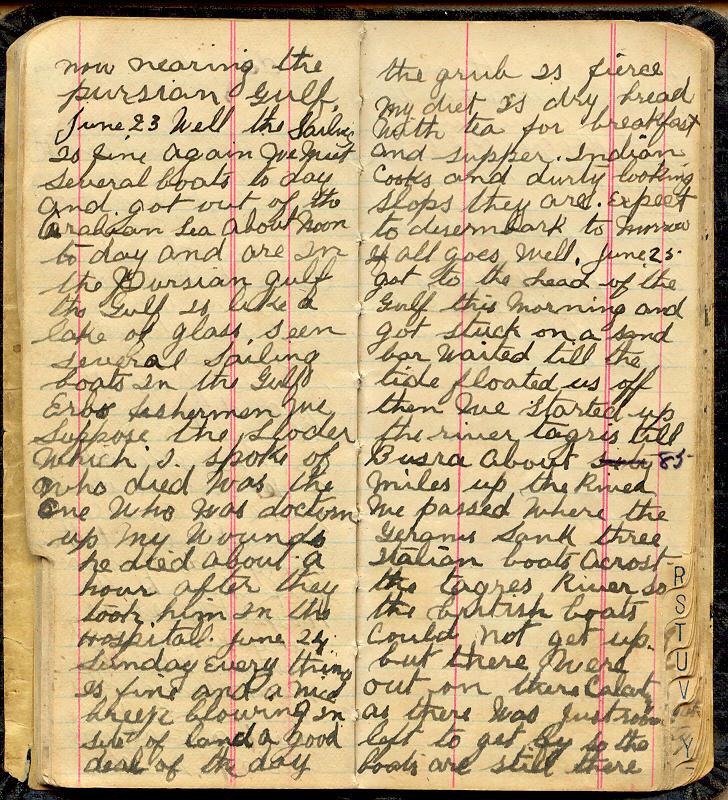 now nearing the
pursian Gulf.
June 23 Well the Sailing
is fine again We Meet
several boats to day
and got out of the
Arabian Sea About Noon
to day and are in
the Pursian gulf
the Gulf is like a
lake of glass, seen
several Sailing
boats in the Gulf
Erbs fishermen We
suppose the Sloder
Which I spoke of
who died was the
One Who Was doctorn
up my Wounds
he died about a
hour after they
took him in the
Hospital. June 24
Sunday Every thing
is fine and a nice
breeze blowing in
site of land a good
deal of the day
the grub is fierce
my diet is dry bread
With tea for breakfast
and supper. Indian
Cooks and durty looking
slops they are. Expect
to disembark to morrow
if all goes Well. June 25
got to the head of the
Gulf this Morning and
got stuck on a sand
bar Waited till the
tide floated us off
then We started up
the river tagris till
Busra About 85
miles up the River
We passed Where the
Germs Sank three
Italian boats Acrost
the tagres River so
the british boats
Could Not get up.
but there Were
out on there Calat
as there Was Just room
left to get by so the
boats are still there
R
S
T
U
V
Y